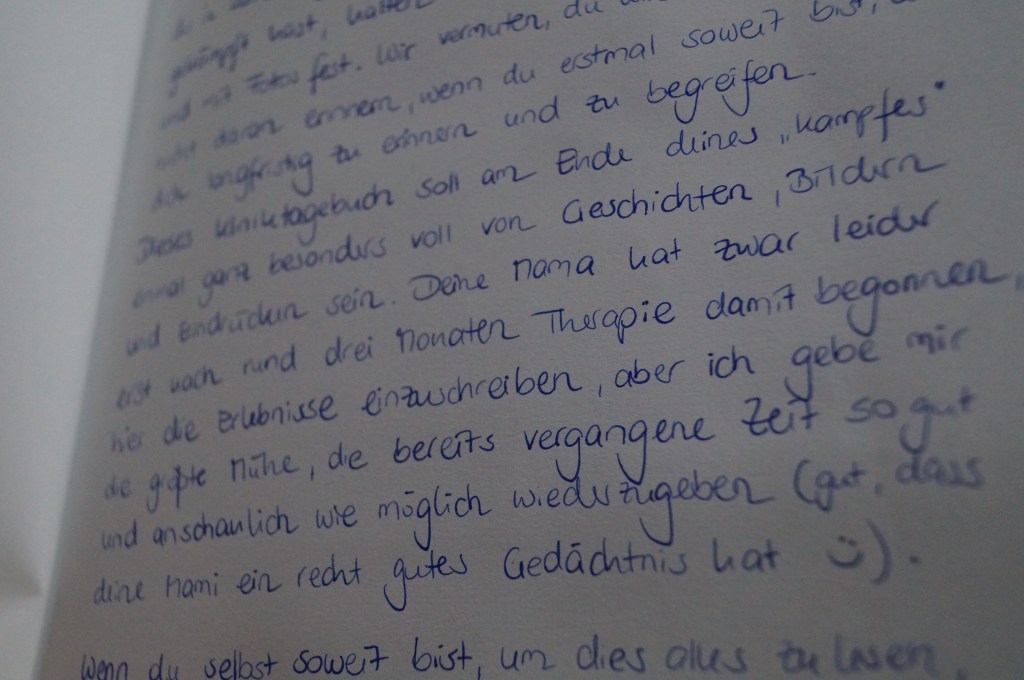 hast, halten
und mit Fotos fest. Wir vermuten, du
nicht daran erinnern, wenn du erstmal soweit bist,
dich langfristig zu erinnern und zu begreifen.
Dieses Kliniktagebuch soll am Ende deines „Kampfes"
einmal ganz besonders voll von Geschichten, Bildern
und Eindrücken sein. Deine Mama hat zwar leider
erst nach rund drei Monaten Therapie damit begonnen,
hier die Erlebnisse einzuschreiben, aber ich gebe mir
die größte Mühe, die bereits vergangene Zeit so gut
und anschaulich wie möglich wiederzugeben (gut, dass
deine Mami ein recht gutes Gedächtnis hat :)).
Wenn du selbst soweit bist, um dies alles zu lesen,